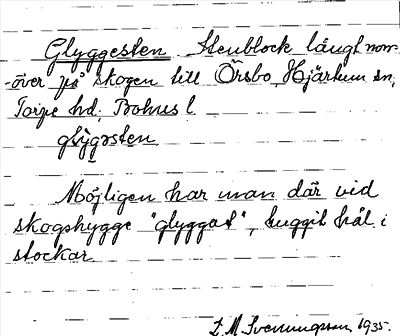 Glyggesten Stenblock långt norr-
-över på skogen till Örsbo, Hjärtum sn,
Torpe hd, Bohus l.
glỳgəsten
Möjligen har man där vid
skogshygge "glyggat", huggit hål i
stockar
S. M. Svenungsson 1935.